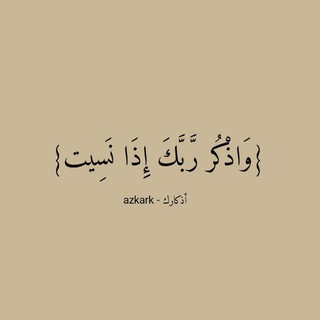 {وَاذْكُر رَّبَّكَ إِذَا نَسِيت}
أذكارك - azkark